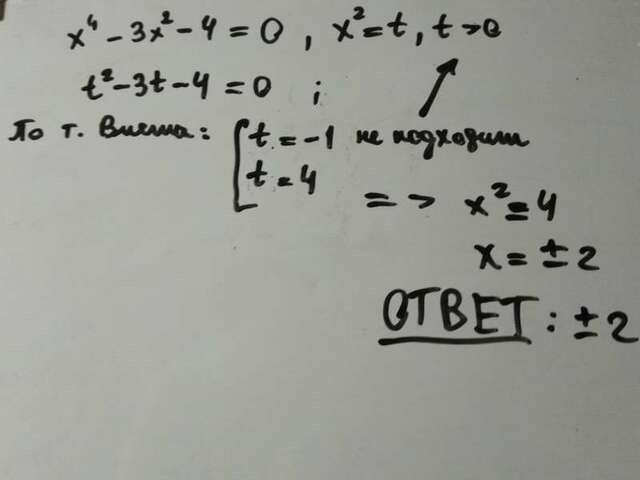 x⁴ - 3x² - 4 = 0 , x² = t , t > 0
t² - 3t - 4 = 0 ;
По т. Виета: [ t = -1 не подходит
t = 4
=> x² = 4
x = ± 2
ОТВЕТ : ± 2